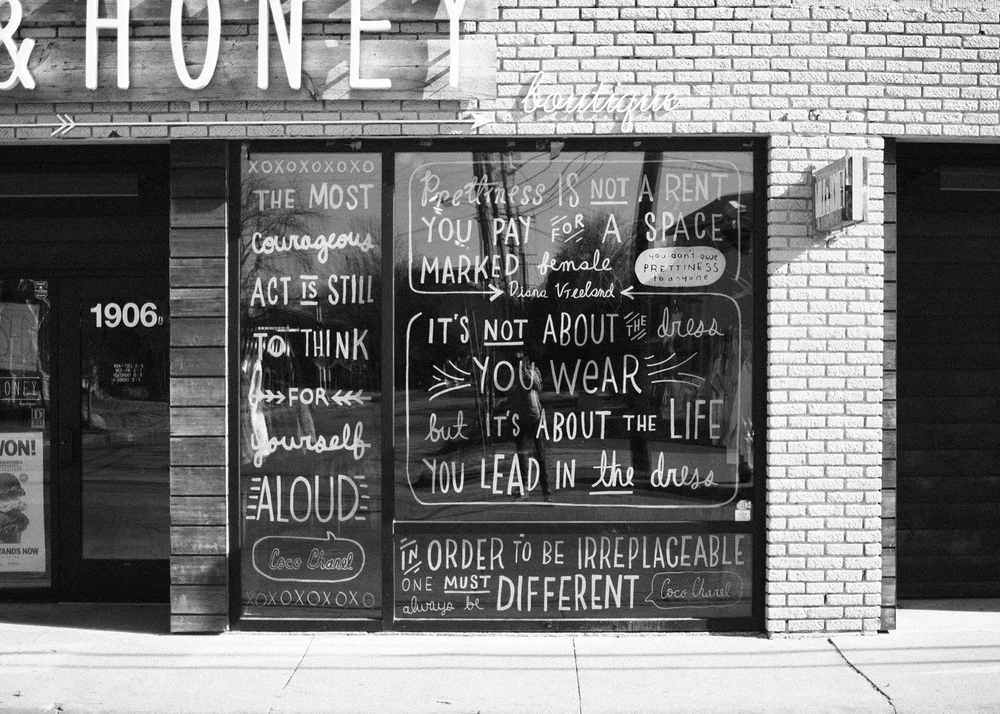 & HONEY
boutique
1906
HONEY
WON!
STANDS NOW
XOXOXOXOXO
THE MOST
courageous
ACT IS STILL
TO THINK
FOR
yourself
ALOUD
Coco Chanel
XOXOXOXOXO
Prettiness IS NOT A RENT
YOU PAY FOR A SPACE
MARKED female
Diana Vreeland
you don't owe
PRETTINESS
to anyone
IT'S NOT ABOUT THE dress
YOU WEAR
but IT'S ABOUT THE LIFE
YOU LEAD IN the dress
IN ORDER TO BE IRREPLACEABLE
ONE MUST
always be DIFFERENT
Coco Chanel